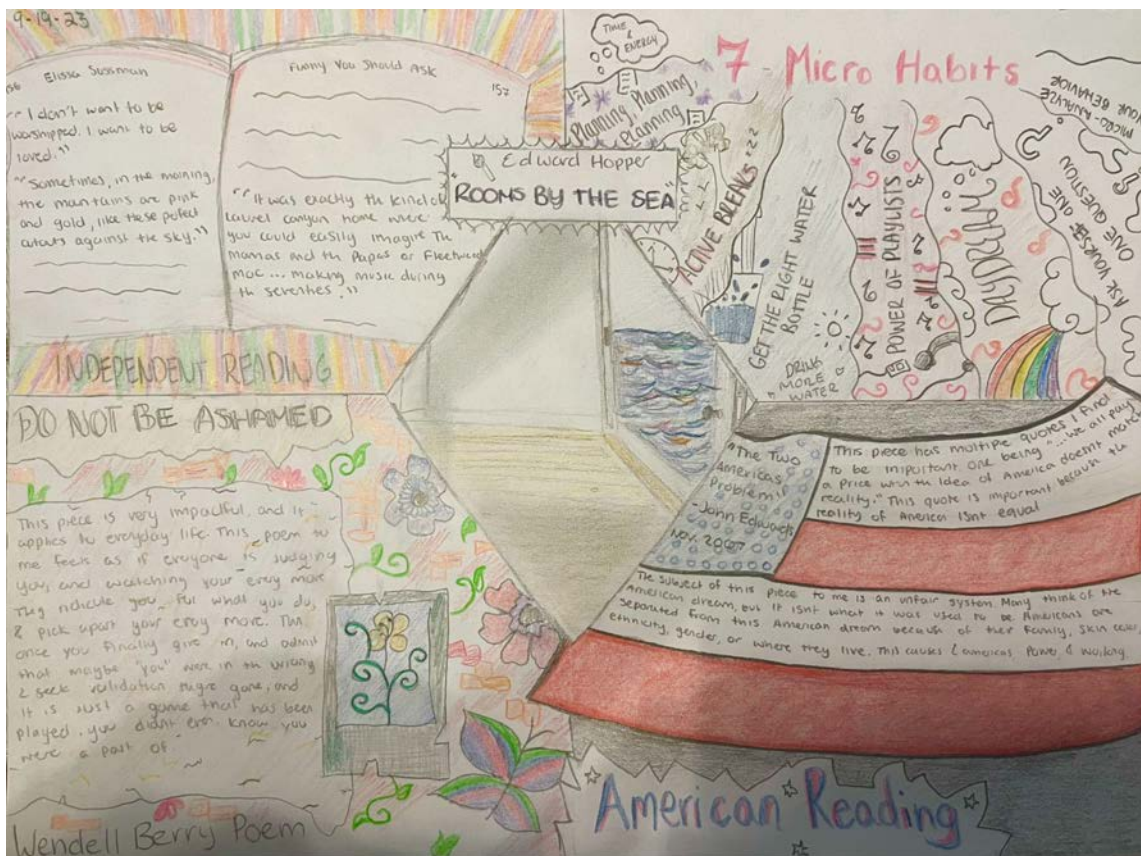 9-19-23
156
Elissa Sussman
"I don't want to be
worshipped. I want to be
loved."
"Sometimes, in the morning,
the mountains are pink
and gold, like these pefect
cutouts against the sky."
Funny You Should Ask
157
"It was exactly th kind of
laurel canyon home where
you could easily imagine Th
mamas and th Papas or Fleetwood
mac... making music during
th seventies."
INDEPENDENT READING
Edward Hopper
"ROOMS BY THE SEA"
7 - Micro Habits
TIME &
ENERGY
Planning, Planning,
Planning
ACTIVE BREAKS
GET THE RIGHT WATER
BOTTLE
DRINK
MORE
WATER
POWER OF PLAYLISTS
DAYDREAM
ASK YOURSELF ONE
ONE QUESTION
MICRO-ANALYZE
YOUR BEHAVIOR
DO NOT BE ASHAMED
This piece is very impactful, and it
applies to everyday life. This poem to
me feels as if everyone is judging
you, and watching your every move
They ridicule you for what you do,
& pick apart your every move. Then
once you finally give in, and admit
that maybe "you" were in th wrong
& seek validation they're gone, and
it is just a game that has been
played. you didnt even know you
were a part of
Wendell Berry Poem
"The Two
Americas
Problem"
-John Edwards
Nov. 2007
This piece has multiple quotes I find
to be important one being "...we all pay
a price when th idea of America doesnt match
reality." This quote is important because th
reality of America isnt equal
The subject of this piece to me is an unfair system. Many think of the
American dream, but it isnt what it was used to be. Americans are
separated from this American dream because of their family, skin color,
ethnicity, gender, or where they live. This causes 2 americas, Power, & working.
American Reading